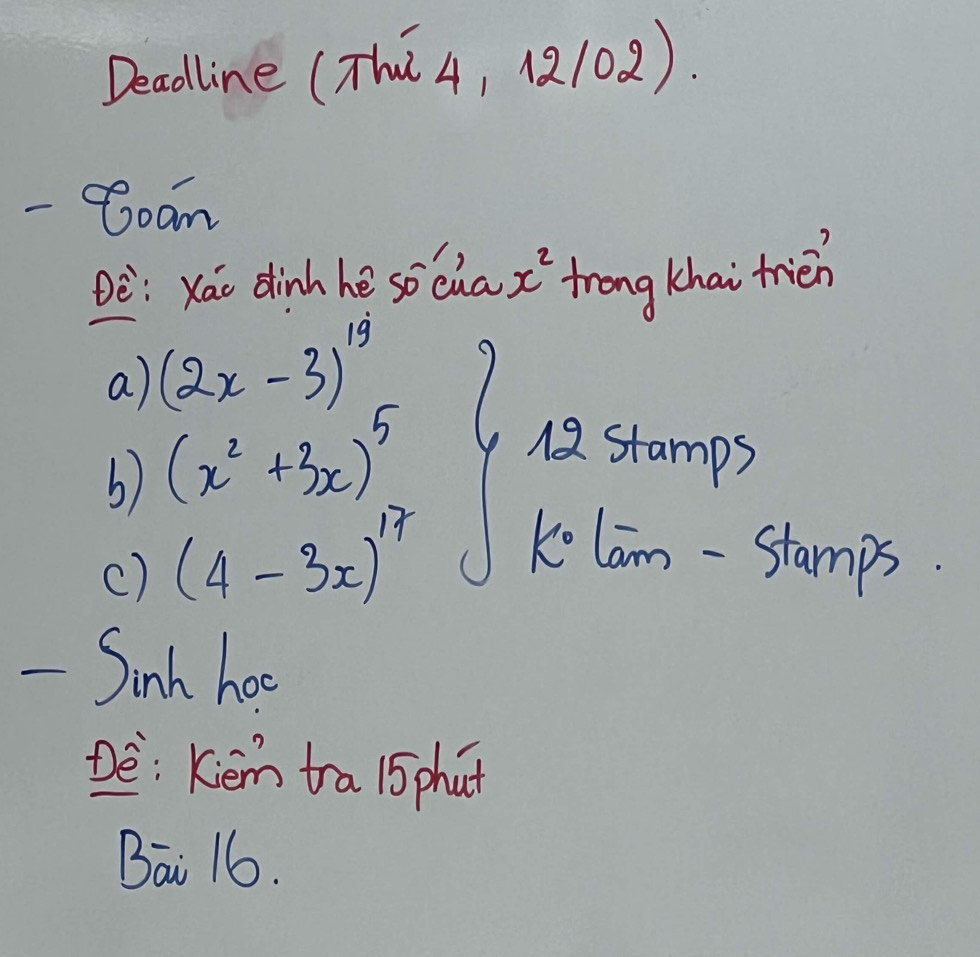 Deadline (Thứ 4, 12/02).
- Toán
Đề: Xác định hệ số của x² trong khai triển
a) (2x - 3)¹⁹
b) (x² + 3x)⁵
c) (4 - 3x)¹⁷
12 stamps
K° làm - stamps.
- Sinh học
Đề: Kiểm tra 15 phút
Bài 16.